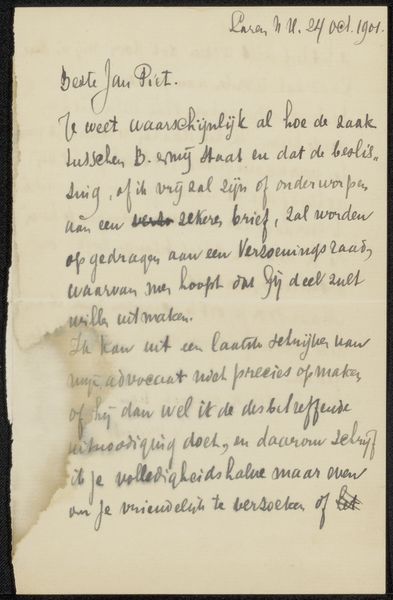 Laren N H. 24 Oct. 1901.
Beste Jan Piet.
Je weet waarschijnlijk al hoe de zaak
tusschen B. en mij staat en dat de beslis-
sing, of ik vrij zal zijn of onderworpen
aan een zekeren brief, zal worden
opgedragen aan een Verzoeningsraad,
waarvan men hoopt dat Gij deel zult
willen uitmaken.
Ik kan uit een laatste schrijven van
mijn advocaat niet precies opmaken
of hij dan wel ik de desbetreffende
uitnoodiging doet, en daarom schrijf
ik je volledigheidshalve maar even
om je vriendelijk te verzoeken of